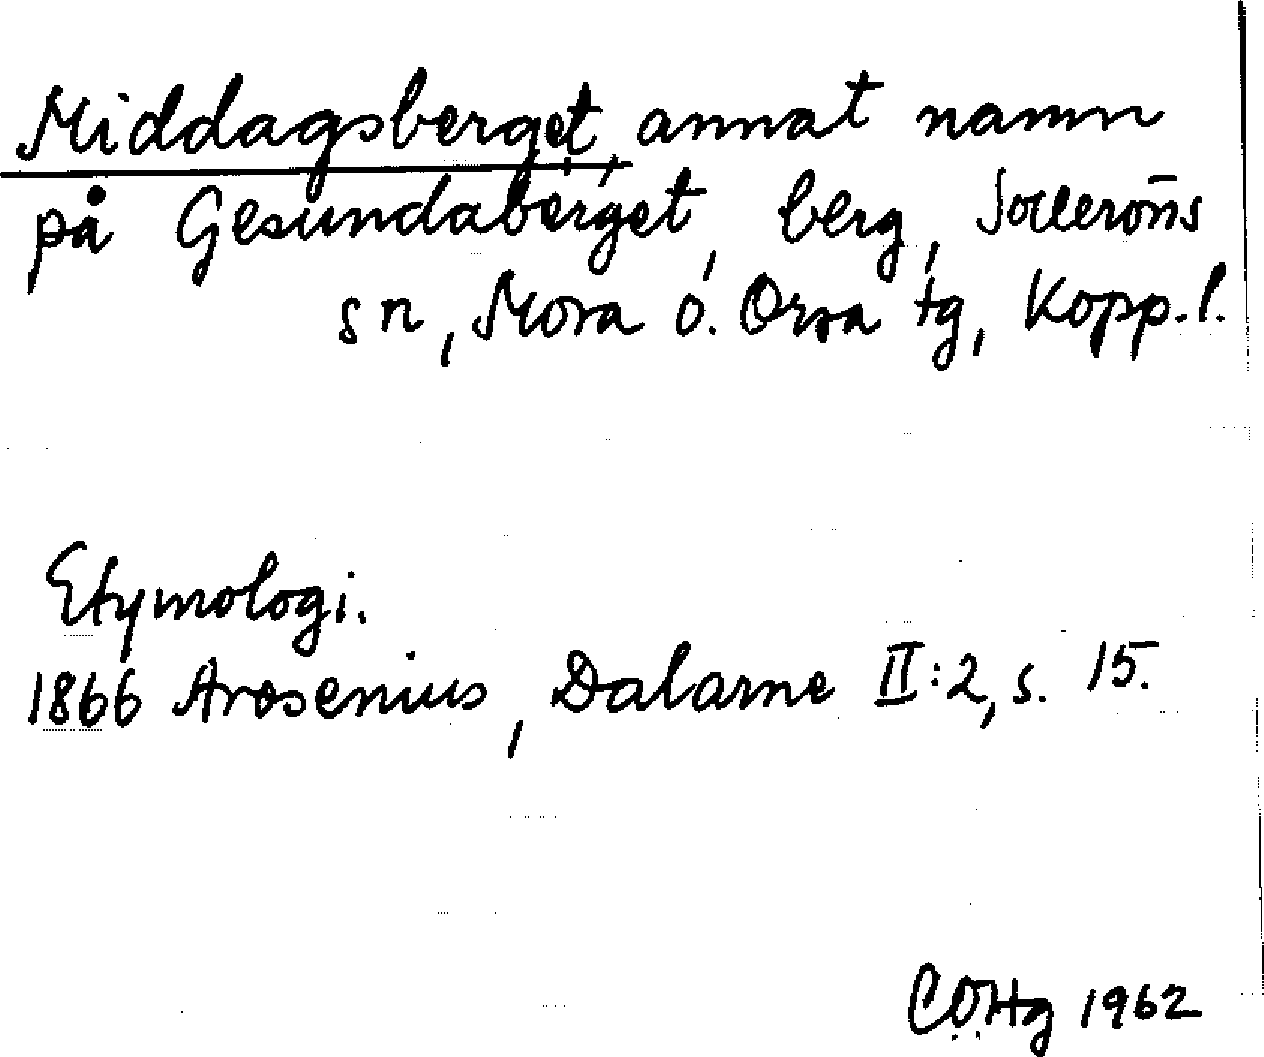 Middagsberget, annat namn
på Gesundaberget, berg, Solleröns
sn, Mora o. Orsa tg, Kopp. l.
Etymologi.
1866 Arosenius, Dalarne II:2, s. 15.
CÖHg 1962